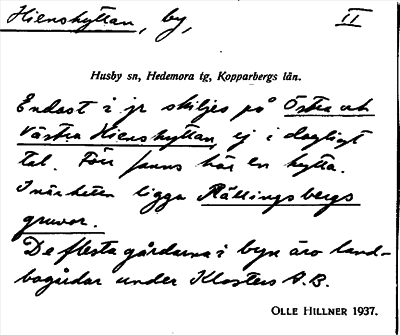 Hienshyttan, by, II
Husby sn, Hedemora tg, Kopparbergs län.
Endast i jr skiljes på Östra och
Västra Hienshyttan, ej i dagligt
tal. Förr fanns här en hytta.
I närheten ligga Rällingsbergs
gruvor.
De flesta gårdarna i byn äro land-
bogårdar under Klosters A.B.
OLLE HILLNER 1937.